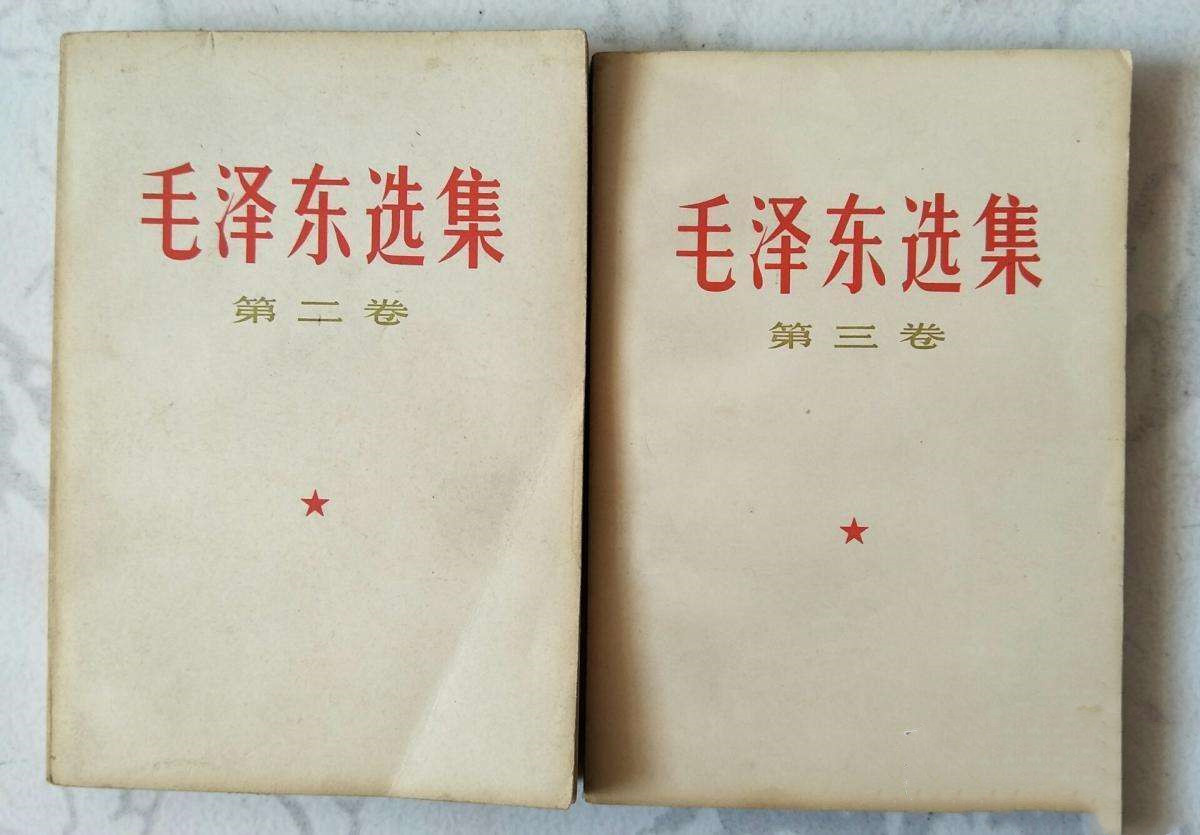 毛泽东选集
第二卷
毛泽东选集
第三卷